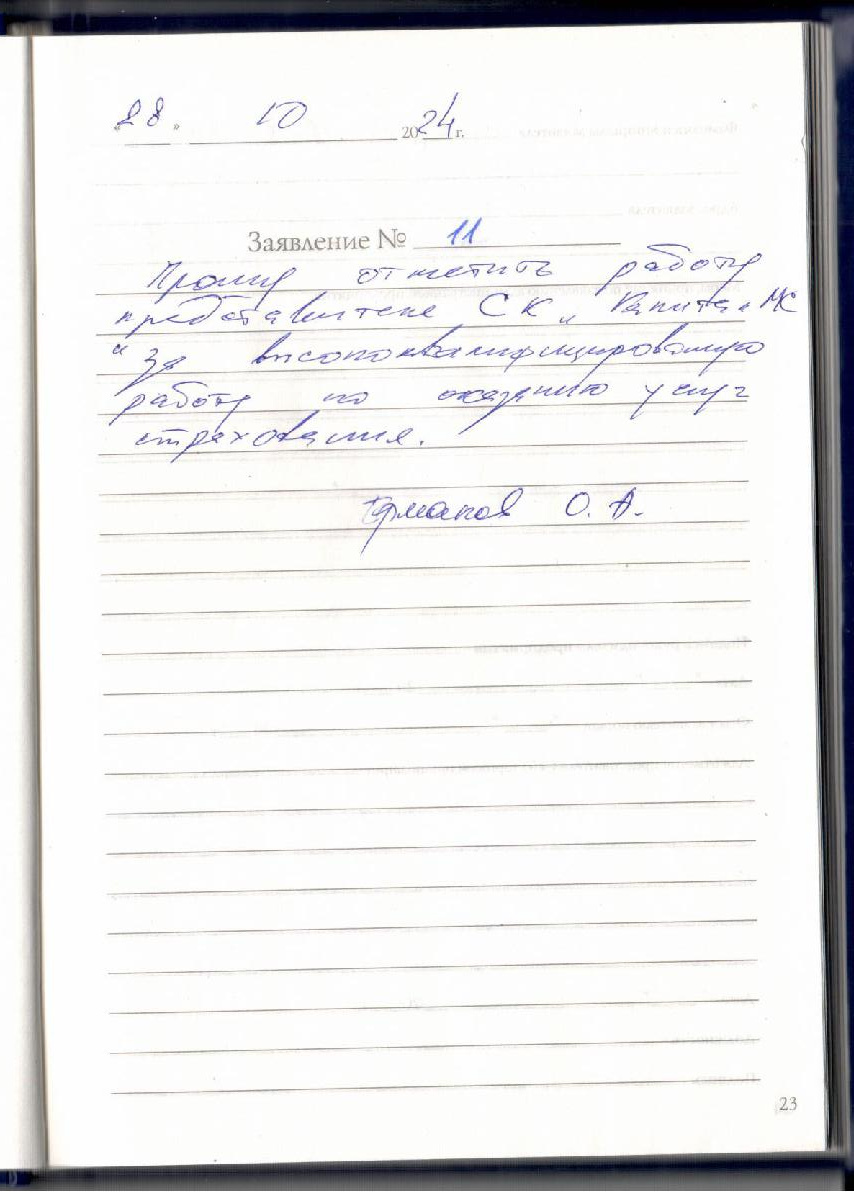 "28" 10 2024 г.
Заявление № 11
Прошу отметить работу
представителя СК „Капитал МС
“ за высококвалифицированую
работу по оказанию услуг
страхования.
Ермаков О. А.
23